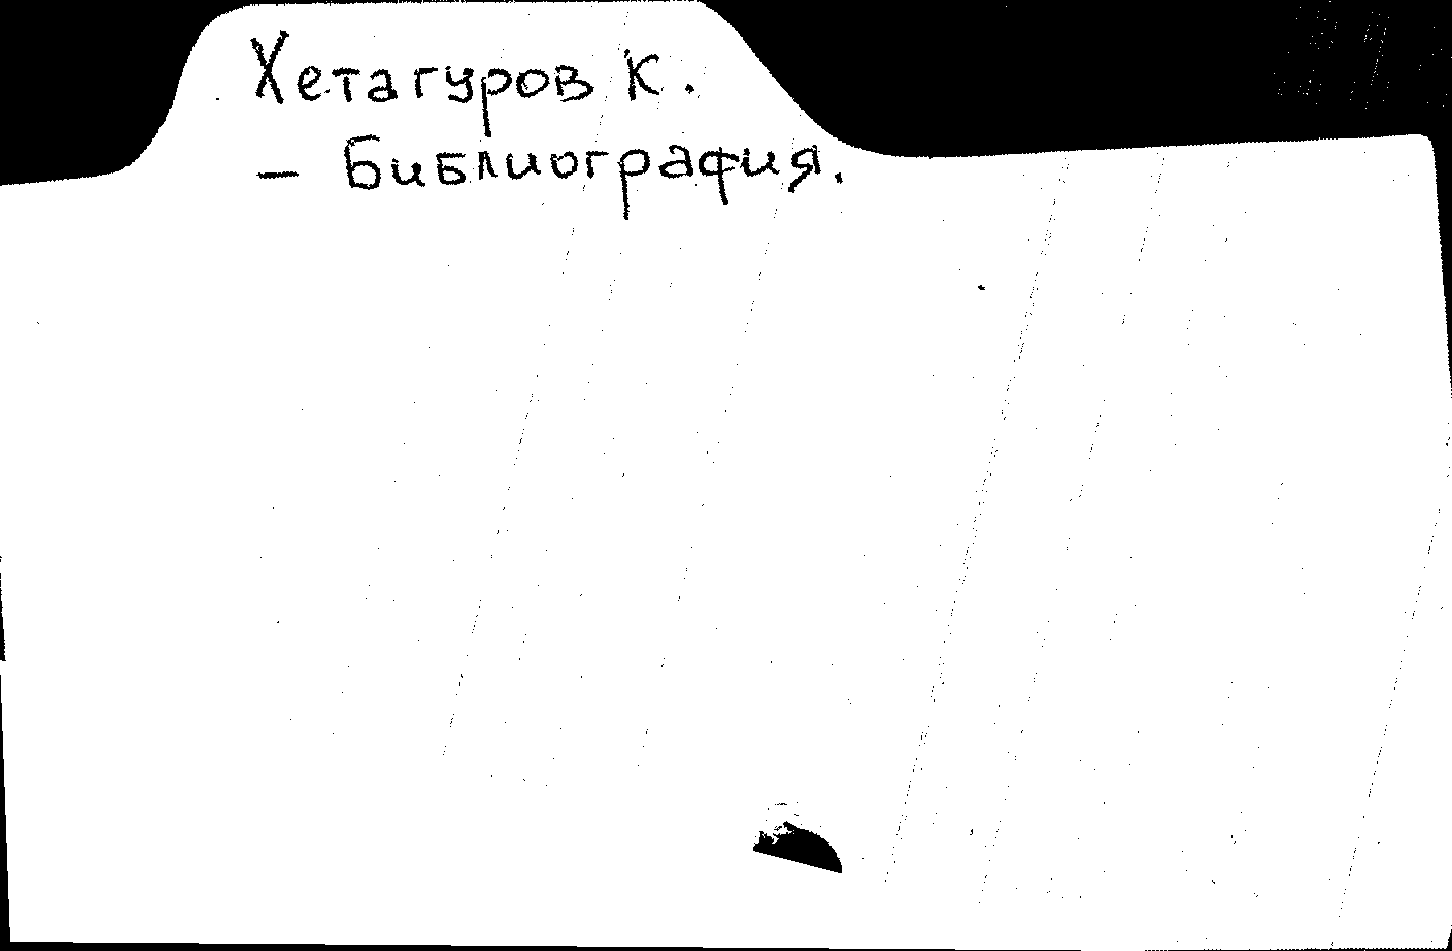 Хетагуров К.
– Библиография.